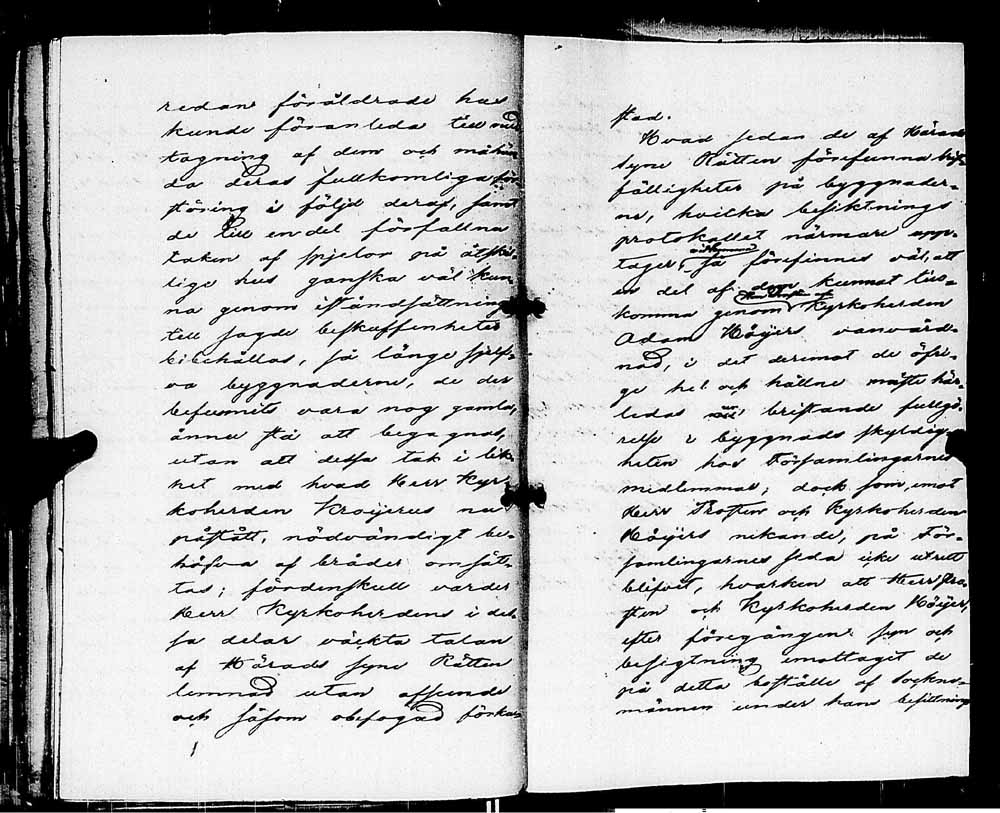 redan föråldrade hus
kunde föranleda till ned
tagning af dem och måhän
da deras fullkomliga för
störing i följd deraf, samt
de till en del förfallna
taken af spjelor på åtski-
lige hus ganska väl kun
na genom iståndsättning
till sagde beskaffenheter
bibehållas, så länge sjelf-
va byggnaderne, de der
befunnits vara nog gamla,
ännu stå att begagnas,
utan att dessa tak i lik
het med hvad Herr Kyr
koherden Kroijerus nu
påstått, nödvändigt be-
höfva af bräder omsät-
tas; fördenskull varder
Herr Kyrkoherdens i des
sa delar väckta talan
af Härads Syne Rätten
lemnad utan afseende
och såsom obefogad förkas
stad.
Hvad sedan de af Härads
Syne Rätten förefunna brist
fälligheter på byggnader-
ne, hvilka besiktnings
protokollet närmare upp-
tager, så förefinnes väl, att
en del af dem kunnat till-
komma genom Kyrkoherden
Adam Höijers vanvård-
nad, i det deremot de öfri-
ge helt och hållne måste här-
ledas bristande fullgö-
relse i byggnads skyldig
heten hos Församlingarnes
medlemmar; dock som, emot
Herr Prosten och Kyrkoherden
Höijers nekande, på För-
samlingarnes sida icke utredt
blifvit, hvarken att Herr Pro-
sten och Kyrkoherden Höijer,
efter föregången syn och
besigtning emottaget de
på detta boställe af Sockne-
männen under hans besittning